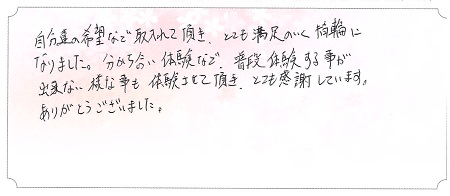 自分達の希望など取入れて頂き、とても満足のいく指輪に
なりました。分かち合い体験など、普段体験する事が
出来ない様な事も体験させて頂き、とても感謝しています。
ありがとうございました。